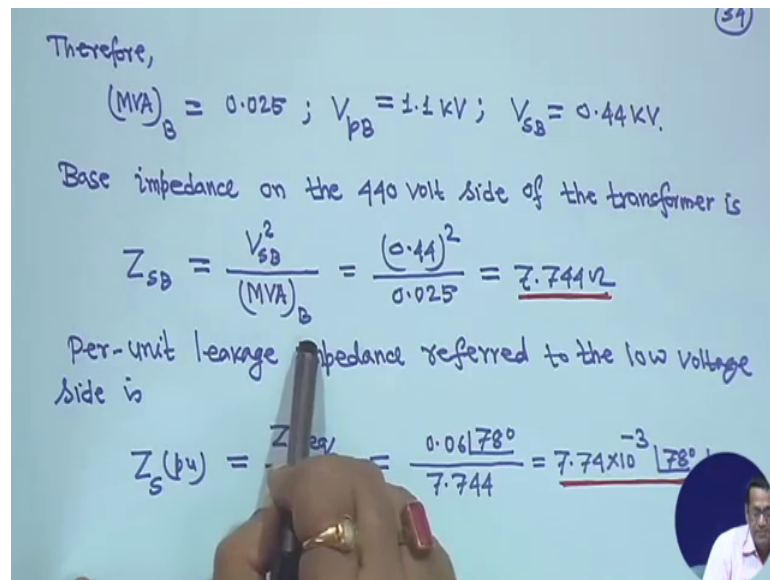 34
Therefore,
(MVA)_B = 0.025 ; V_pB = 1.1 KV ; V_SB = 0.44 KV.
Base impedance on the 440 volt side of the transformer is
Z_SB = V_SB^2 / (MVA)_B = (0.44)^2 / 0.025 = 7.744 Ω
Per-unit leakage impedance referred to the low voltage
side is
Z_S(pu) = = 0.06∠78° / 7.744 = 7.74×10^-3 ∠78°